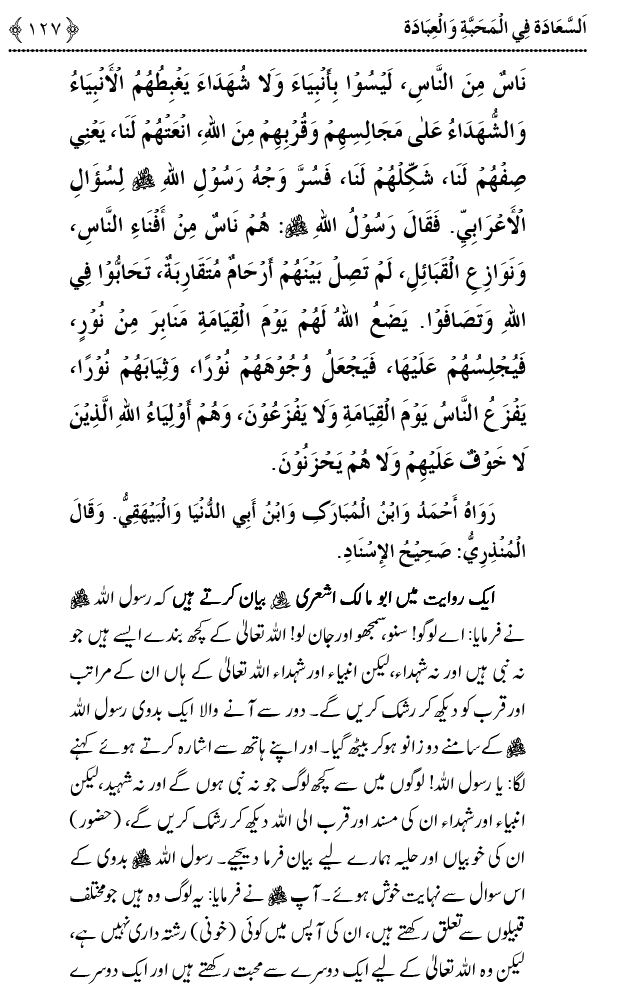 اَلسَّعَادَة فِي الْمَحَبَّةِ وَالْعِبَادَة ﴿۱۲۷﴾
نَاسٌ مِنَ النَّاسِ، لَيْسُوْا بِأَنْبِيَاءَ وَلَا شُهَدَاءَ يَغْبِطُهُمُ الْأَنْبِيَاءُ
وَالشُّهَدَاءُ عَلٰى مَجَالِسِهِمْ وَقُرْبِهِمْ مِنَ اللهِ، انْعَتْهُمْ لَنَا، يَعْنِي
صِفْهُمْ لَنَا، شَكِّلْهُمْ لَنَا، فَسُرَّ وَجْهُ رَسُوْلِ اللهِ ﷺ لِسُؤَالِ
الْأَعْرَابِيِّ. فَقَالَ رَسُوْلُ اللهِ ﷺ: هُمْ نَاسٌ مِنْ أَفْنَاءِ النَّاسِ،
وَنَوَازِعِ الْقَبَائِلِ، لَمْ تَصِلْ بَيْنَهُمْ أَرْحَامٌ مُتَقَارِبَةٌ، تَحَابُّوْا فِي
اللهِ وَتَصَافَوْا. يَضَعُ اللهُ لَهُمْ يَوْمَ الْقِيَامَةِ مَنَابِرَ مِنْ نُوْرٍ،
فَيُجْلِسُهُمْ عَلَيْهَا، فَيَجْعَلُ وُجُوْهَهُمْ نُوْرًا، وَثِيَابَهُمْ نُوْرًا،
يَفْزَعُ النَّاسُ يَوْمَ الْقِيَامَةِ وَلَا يَفْزَعُوْنَ، وَهُمْ أَوْلِيَاءُ اللهِ الَّذِيْنَ
لَا خَوْفٌ عَلَيْهِمْ وَلَا هُمْ يَحْزَنُوْنَ.
رَوَاهُ أَحْمَدُ وَابْنُ الْمُبَارَكِ وَابْنُ أَبِي الدُّنْيَا وَالْبَيْهَقِيُّ. وَقَالَ
الْمُنْذِرِيُّ: صَحِيْحُ الإِسْنَادِ.
ایک روایت میں ابو مالک اشعری ؓ بیان کرتے ہیں کہ رسول اللہ ﷺ
نے فرمایا: اے لوگو! سنو، سمجھو اور جان لو! اللہ تعالیٰ کے کچھ بندے ایسے ہیں جو
نہ نبی ہیں اور نہ شہداء، لیکن انبیاء اور شہداء اللہ تعالیٰ کے ہاں ان کے مراتب
اور قرب کو دیکھ کر رشک کریں گے۔ دور سے آنے والا ایک بدوی رسول اللہ
ﷺ کے سامنے دو زانو ہو کر بیٹھ گیا۔ اور اپنے ہاتھ سے اشارہ کرتے ہوئے کہنے
لگا: یا رسول اللہ! لوگوں میں سے کچھ لوگ جو نہ نبی ہوں گے اور نہ شہید، لیکن
انبیاء اور شہداء ان کی مسند اور قرب الی اللہ دیکھ کر رشک کریں گے، (حضور)
ان کی خوبیاں اور حلیہ ہمارے لیے بیان فرما دیجیے۔ رسول اللہ ﷺ بدوی کے
اس سوال سے نہایت خوش ہوئے۔ آپ ﷺ نے فرمایا: یہ لوگ وہ ہیں جو مختلف
قبیلوں سے تعلق رکھتے ہیں، ان کی آپس میں کوئی (خونی) رشتہ داری نہیں ہے،
لیکن وہ اللہ تعالیٰ کے لیے ایک دوسرے سے محبت رکھتے ہیں اور ایک دوسرے